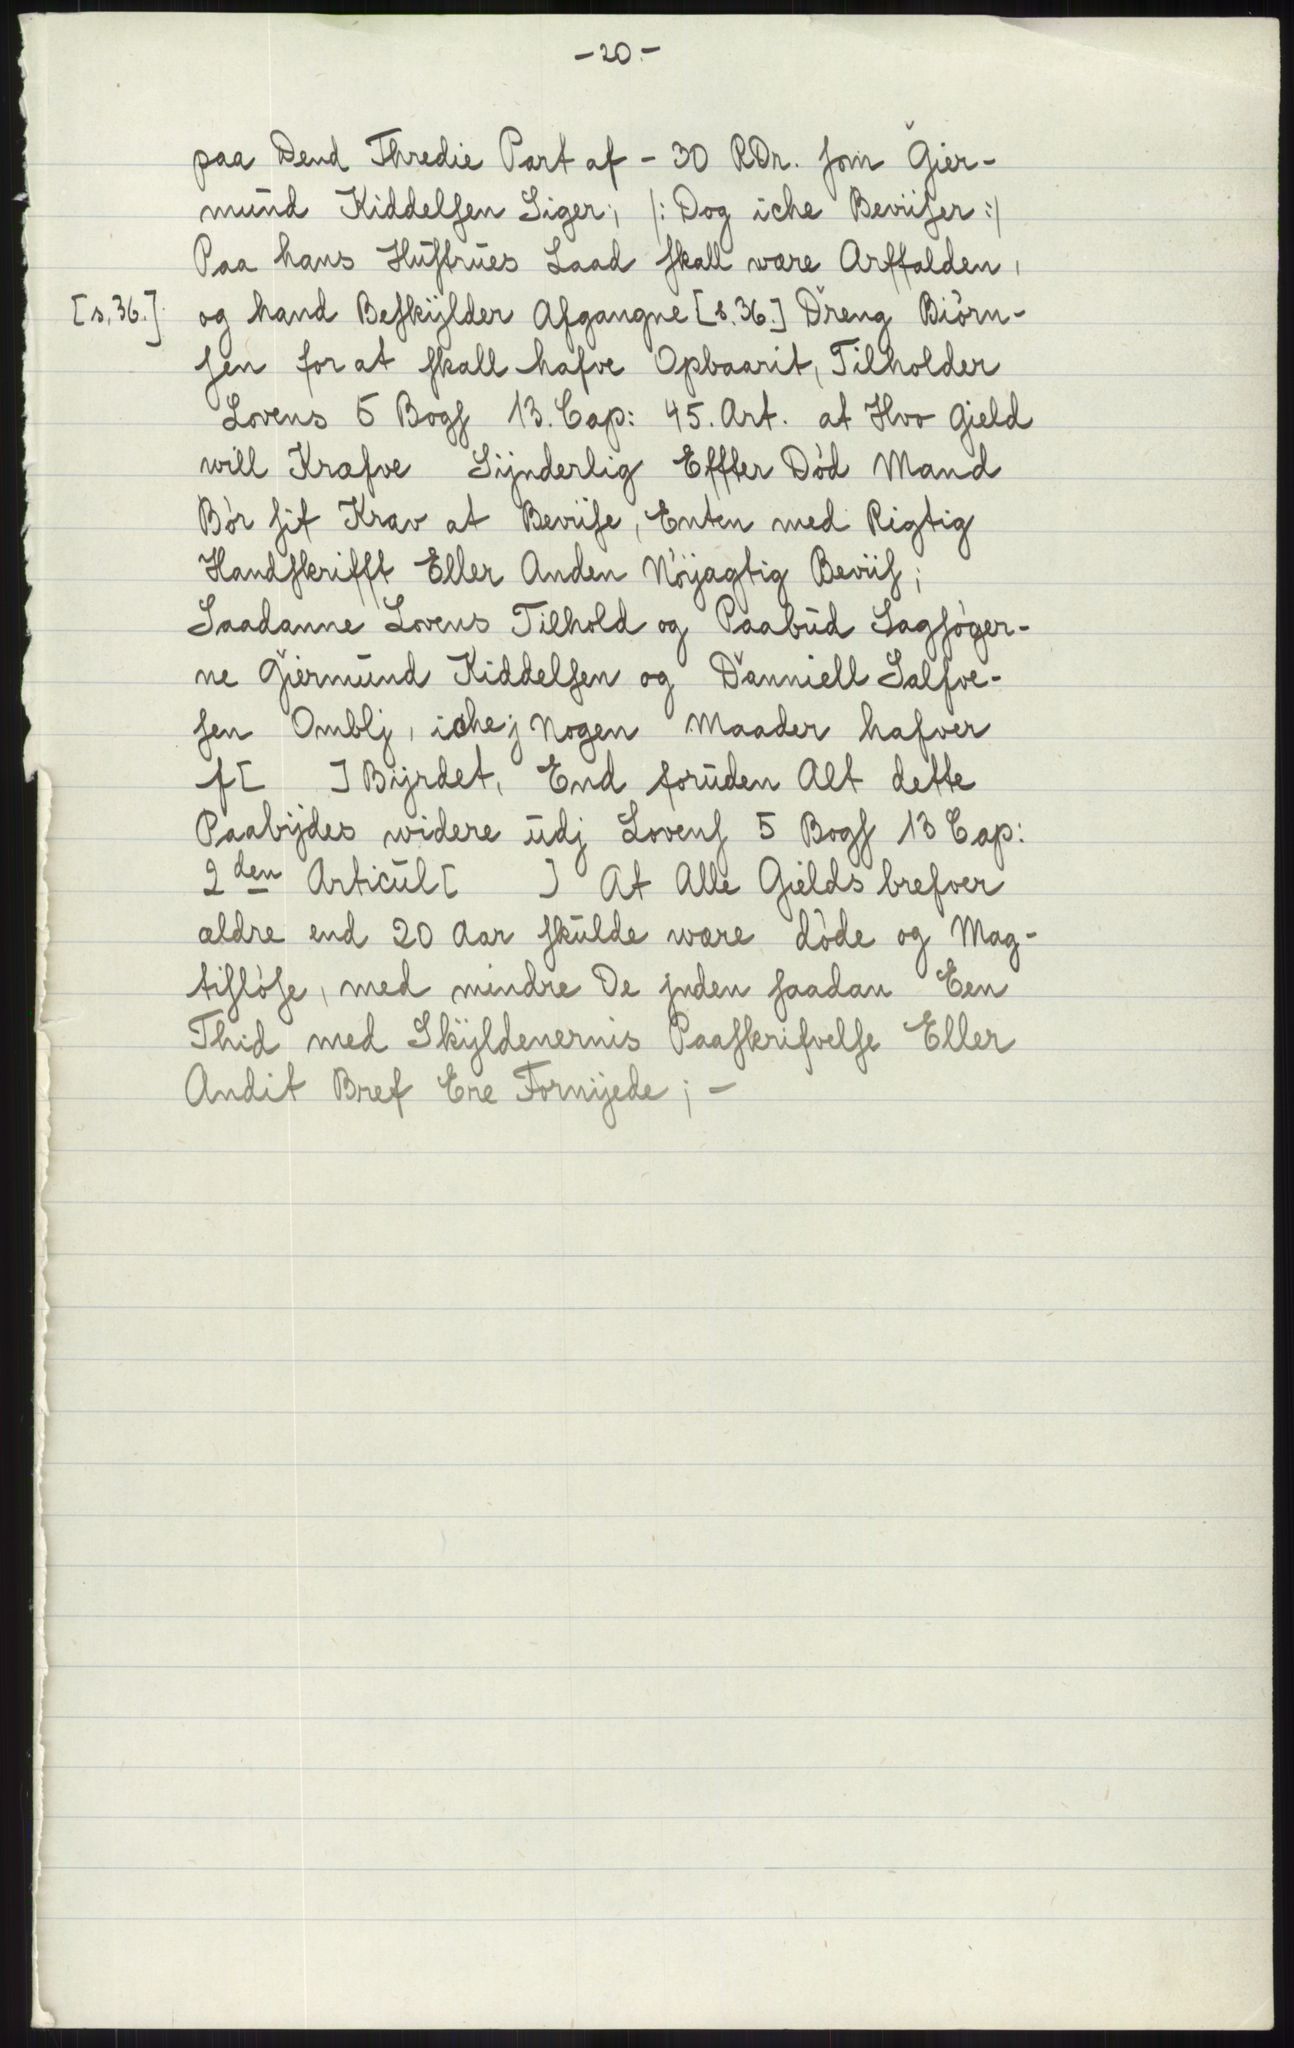 - 20. -
paa Dend Thredie Part af - 30 RDr. som Gier-
mund Kiddelsen Siger; /: Dog iche Beviiser :/
Paa hans Hustrues Laad skall wære Arffalden,
[s. 36.] og hand Beskÿlder Afgangne [s. 36.] Dreng Biörn-
sen for at skall hafve Opbaarit, Tilholder
Lovens 5 Bogs 13. Cap: 45. Art. at Hvo Gield
will Kræfve Sÿnderlig Effter Död Mand
Bör sit Krav at Beviise, Enten med Rigtig
Handskrifft Eller Anden Nöÿagtig Beviis;
Saadanne Lovens Tilhold og Paabud Sagsöger-
ne Giermund Kiddelsen og Danniell Salfve-
sen Omblj, iche j Nogen Maader hafver
f[ ] Bÿrdet, End foruden Alt dette
Paabÿdes widere udj Lovens 5 Bogs 13 Cap:
2den Articul [ ] At Alle Gields brefver
ældre end 20 Aar skulde wære döde og Mag-
tislöse, med mindre De jnden saadan Een
Thid med Skÿldenernis Paaskrifvelse Eller
Andit Bref Ere Fornÿede; -